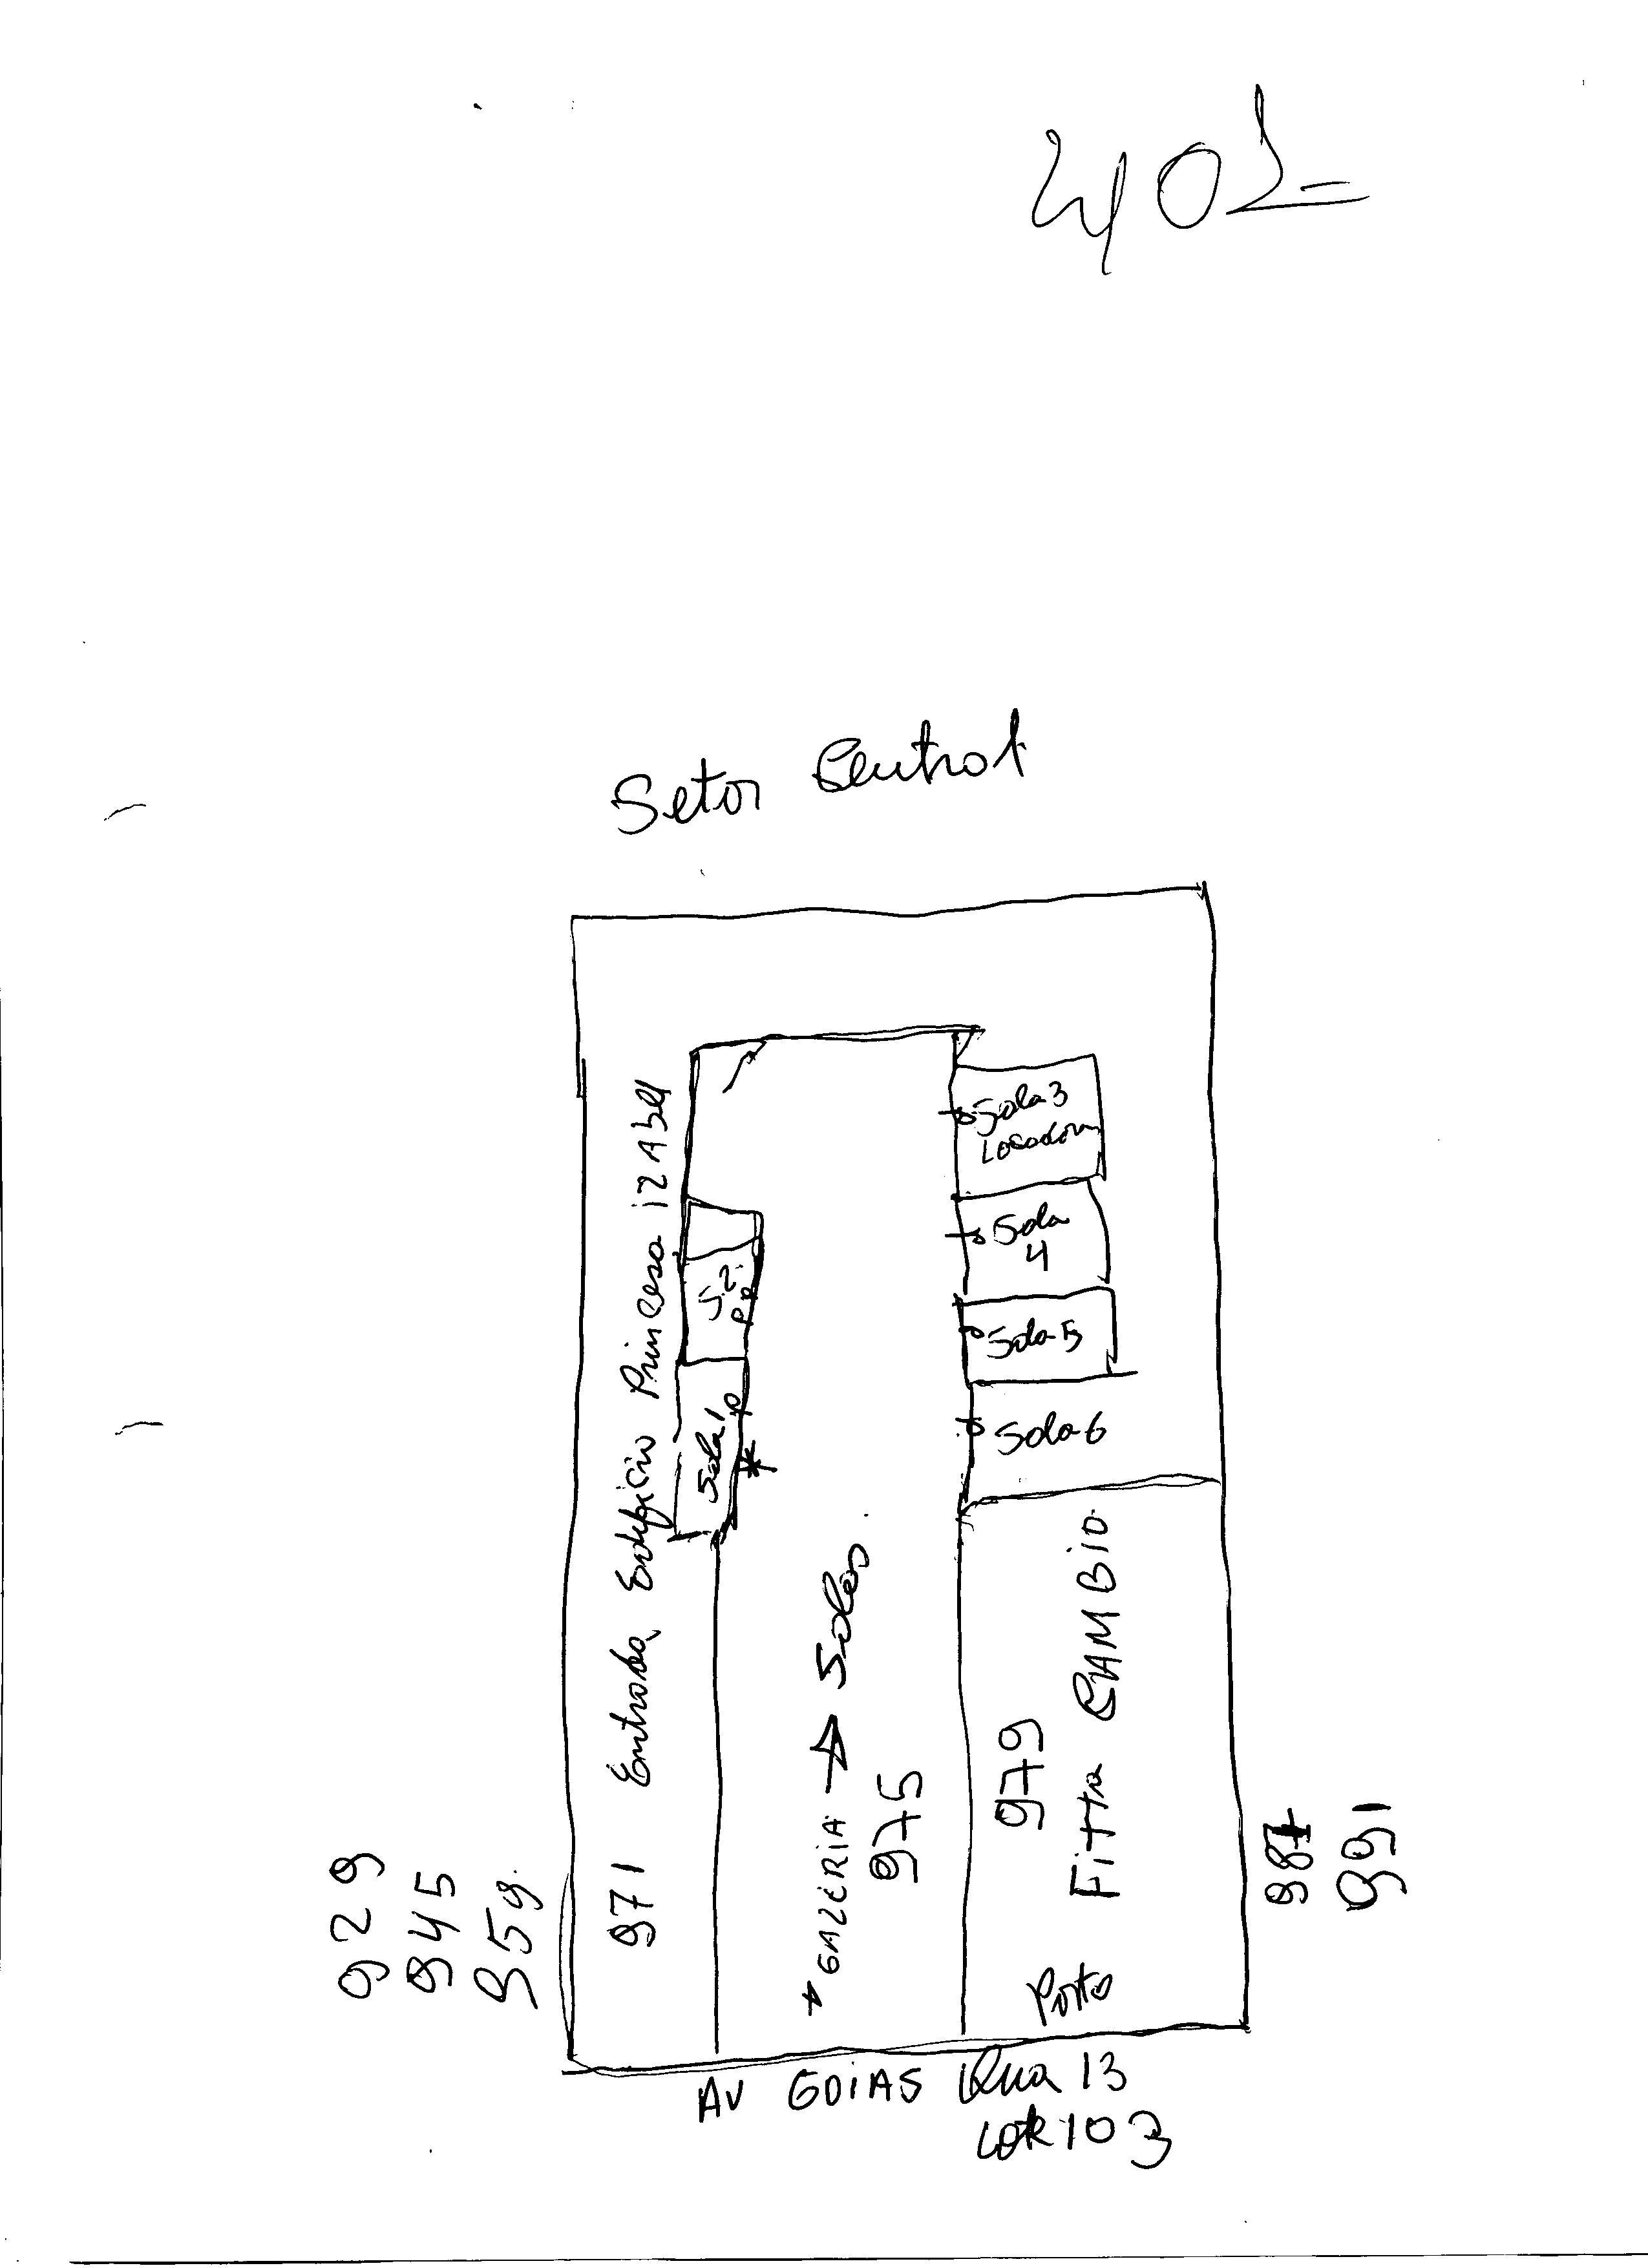 Setor Central
Sala 3
Locadora
Sala
4
Sala 5
Sala 6
S 2
Sala 1
971 Entrada Edifício Princesa izAbel
* GALERIA → Salas
975
979
Fitta CAMBIO
Porta
929
945
959
987
991
AV GOIAS Qua 13
Lote 103